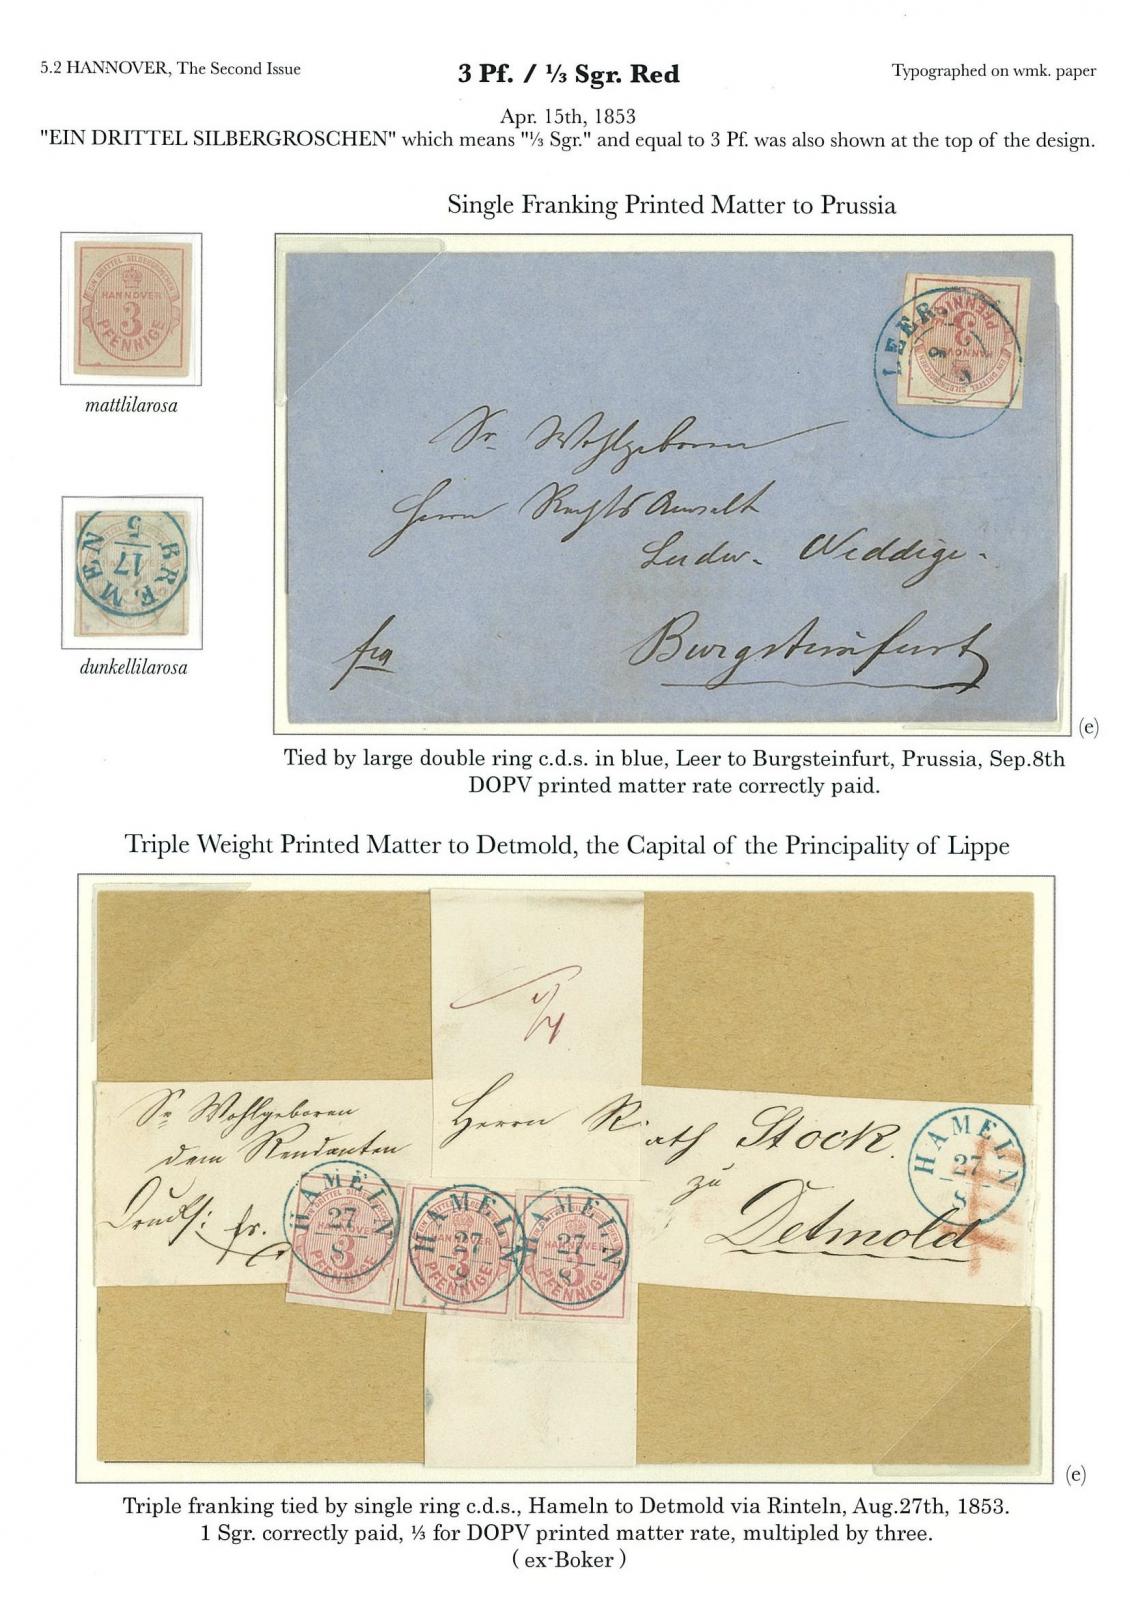 5.2 HANNOVER, The Second Issue
3 Pf. / ⅓ Sgr. Red
Typographed on wmk. paper
Apr. 15th, 1853
"EIN DRITTEL SILBERGROSCHEN" which means "⅓ Sgr." and equal to 3 Pf. was also shown at the top of the design.
Single Franking Printed Matter to Prussia
EIN DRITTEL SILBERGROSCHEN
HANNOVER
3
PFENNIGE
mattlilarosa
BREMEN
17
5
dunkellilarosa
LEER
EIN DRITTEL SILBERGROSCHEN
HANNOVER
3
PFENNIGE
Sr. Wohlgeboren
Herrn Rechts Anwalt
Ludw. Weddige.
Burgsteinfurt
(e)
Tied by large double ring c.d.s. in blue, Leer to Burgsteinfurt, Prussia, Sep.8th
DOPV printed matter rate correctly paid.
Triple Weight Printed Matter to Detmold, the Capital of the Principality of Lippe
Sr Wohlgeboren
dem Rendanten
Herrn R. ath Stock.
zu
Detmold
fr.
HAMELN
27
8
HAMELN
27
8
3
PFENNIGE
HAMELN
27
8
3
PFENNIGE
HAMELN
27
8
3
PFENNIGE
(e)
Triple franking tied by single ring c.d.s., Hameln to Detmold via Rinteln, Aug.27th, 1853.
1 Sgr. correctly paid, ⅓ for DOPV printed matter rate, multipled by three.
( ex-Boker )